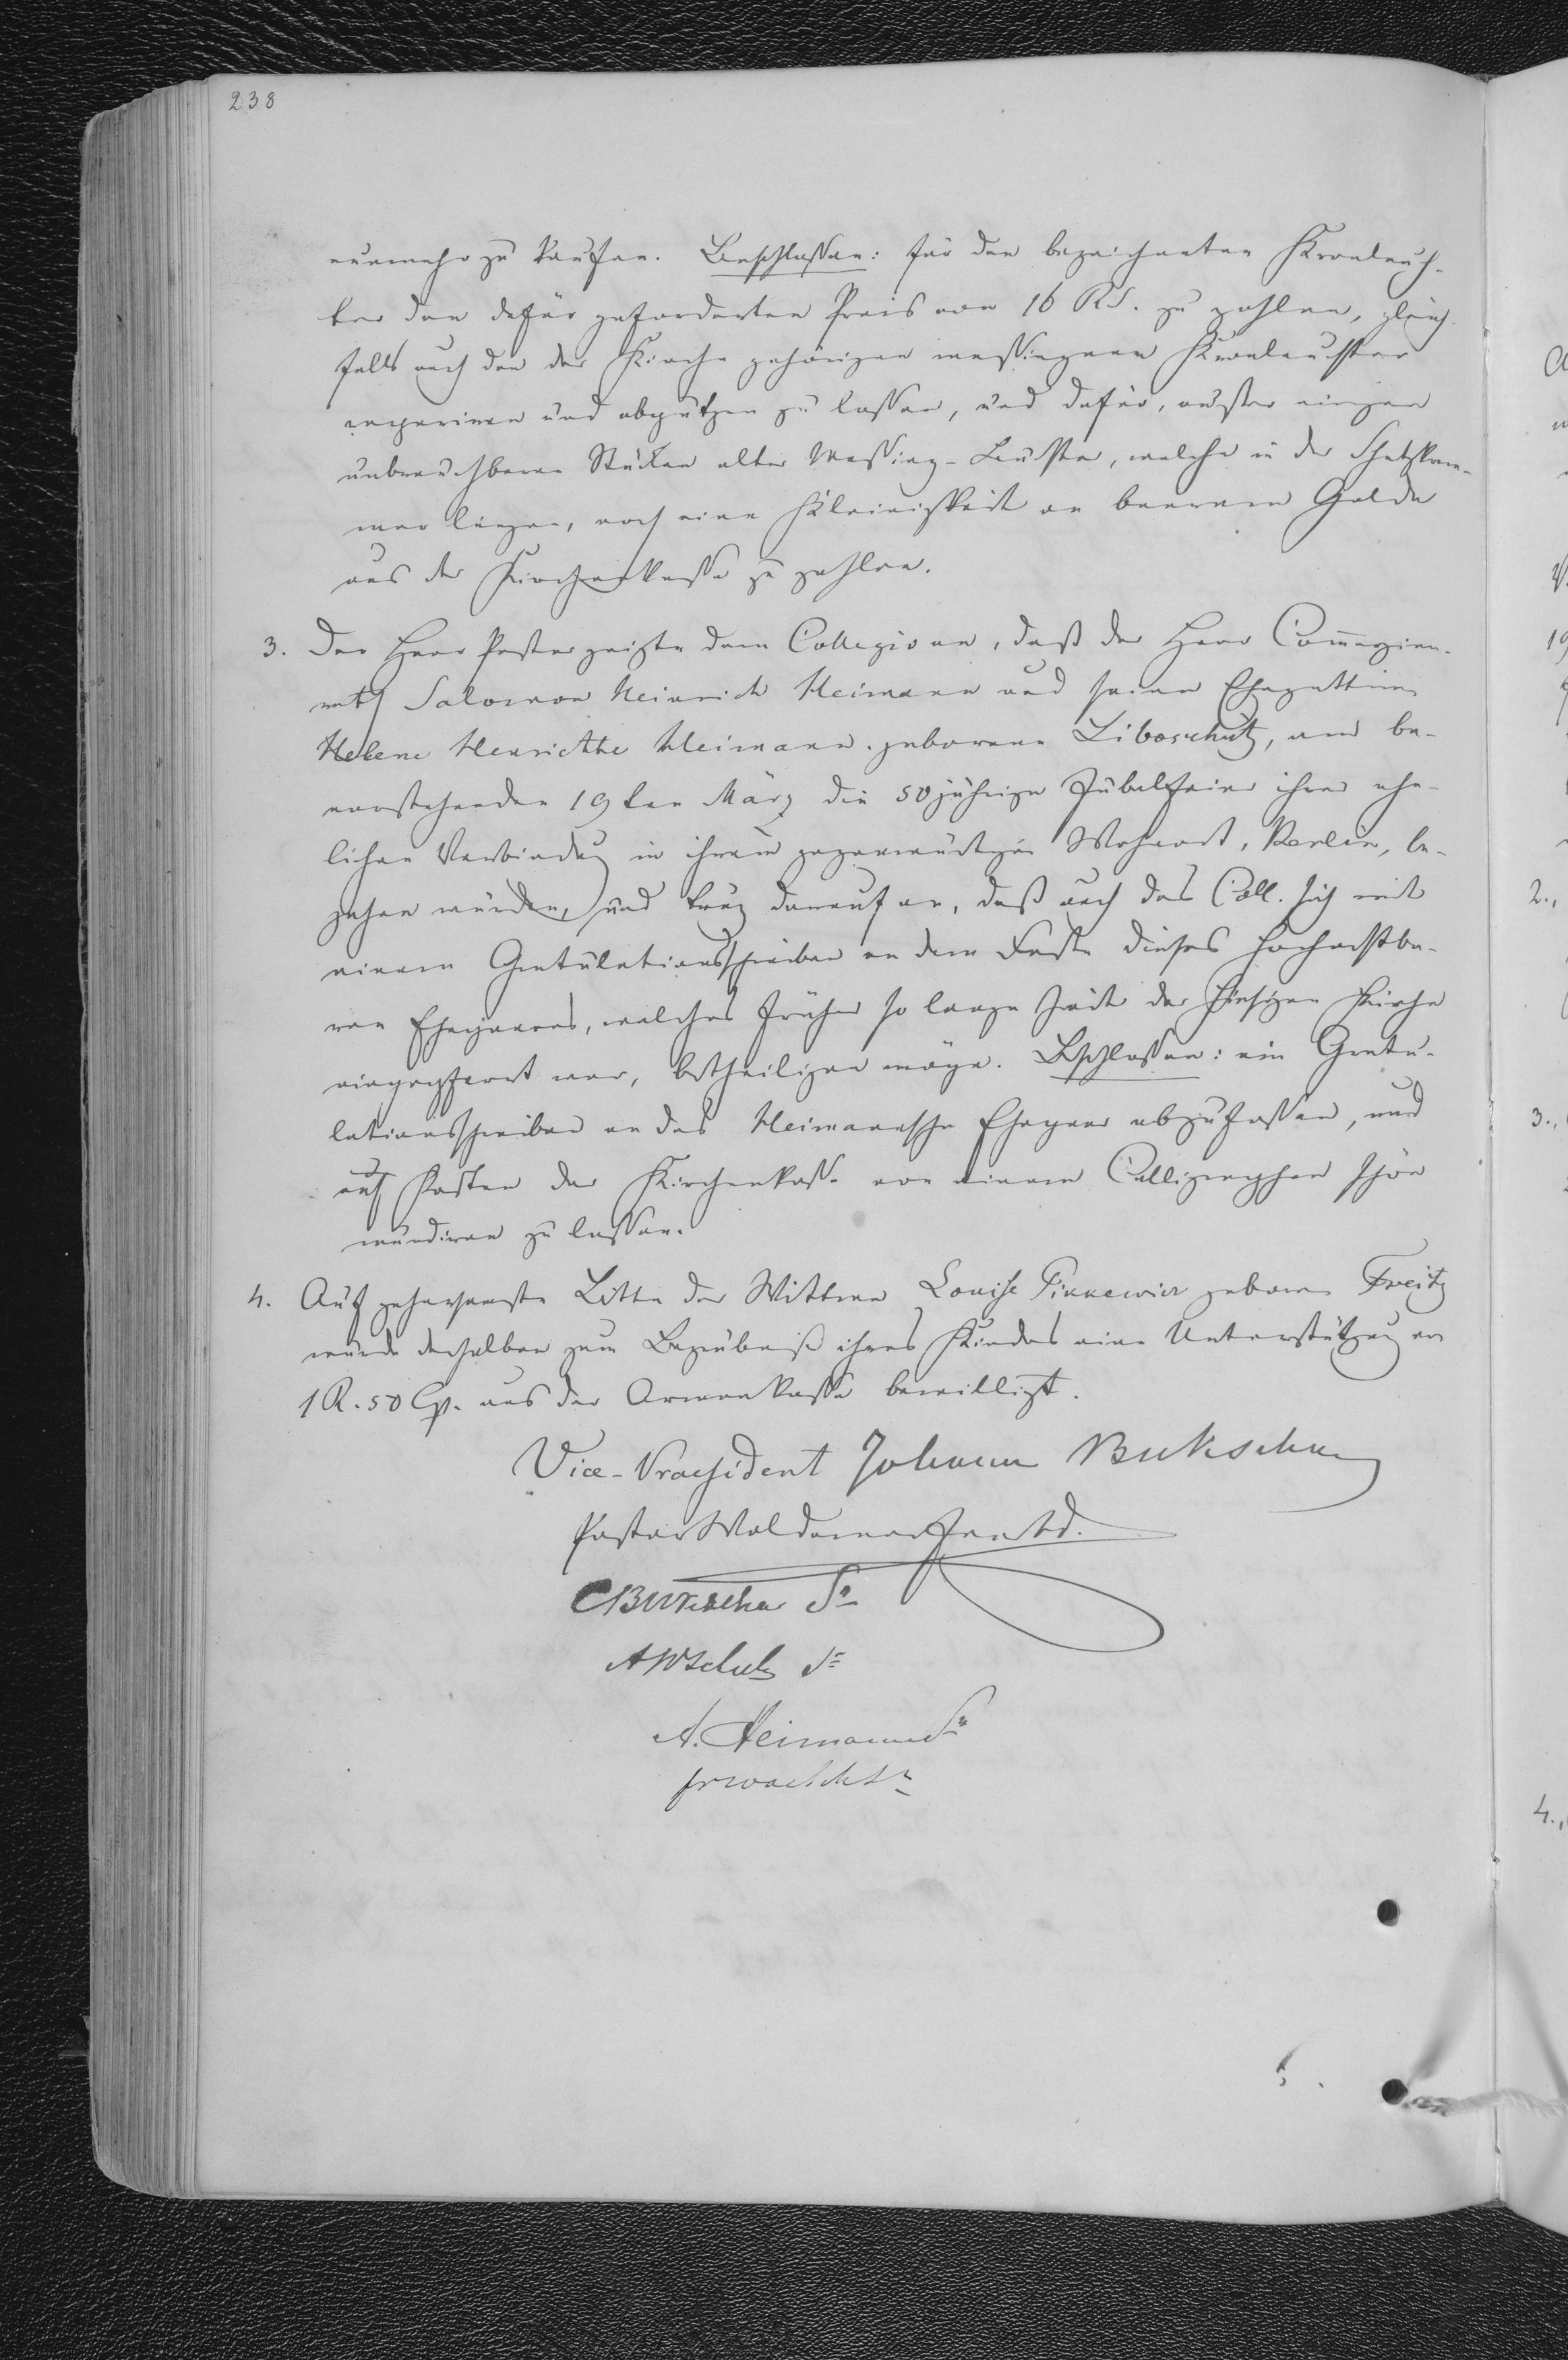 238
nunmehr zu kaufen. Beschlossen: für den bezeichneten Kronleuch-
ter den dafür geforderten Preis von 16 RS. zu zahlen, gleich-
falls auch den der Kirche gehörigen messingnen Kronleuchter
repariren und abputzen zu lassen, und dafür, außer einigen
unbrauchbaren Stücken alter Messing-Leuchter, welche in der Schatzkam-
mer liegen, noch eine Kleinigkeit an baarem Gelde
aus der Kirchenkasse zu zahlen.
3. Der Herr Pastor zeigte dem Collegio an, daß der Herr Commerzien-
rath Salomon Heinrich Heimann und seine Ehegattin
Helene Henriethe Heimann geborene Liboschutz, am be-
vorstehenden 19ten März die 50jährige Jubelfeier ihrer ehe-
lichen Verbindung in ihrem gegenwärtigen Wohnort, Berlin, be-
gehen würden, und trug darauf an, daß auch das Coll. sich mit
einem Gratulationsschreiben an dem Feste dieses hochachtba-
ren Ehepaares, welches früher so lange Zeit der hiesigen Kirche
eingepfarrt war, betheiligen möge. Beschlossen: ein Gratu-
lationsschreiben an das Heimannsche Ehepaar abzufassen, und
auf Kosten der Kirchenkasse von einem Calligraphen schön
mundiren zu lassen.
4. Auf gehorsamste Bitte der Wittwe Louise Pinkewicz geborne Freitz
wurde derselben zum Begräbniß ihres Kindes eine Unterstützung von
1 R. 50 Cp. aus der Armenkasse bewilligt.
Vice-Praesident Johann Bukschn
Pastor Woldemar
CBukscha Sr
AWSchulz Sr
A. Heimann Sr
2.,
3.,
4.,